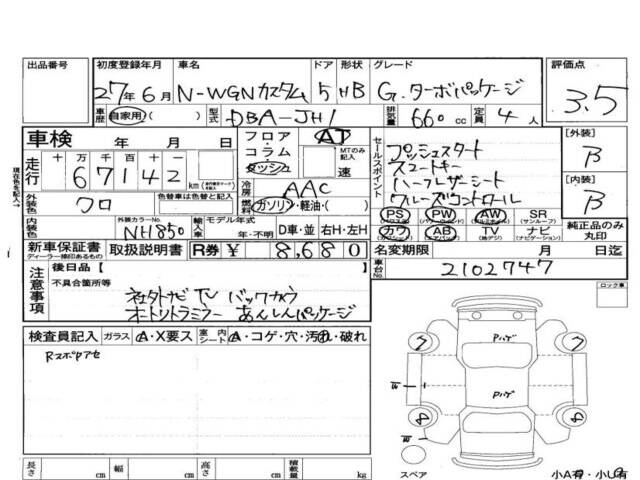 出品番号 初度登録年月 車名 ドア 形状 グレード 評価点
27年6月 N-WGNカスタム 5 HB G.ターボパッケージ 3.5
車歴 自家用 ( ) 型式 DBA-JH1 排気量 660 cc 定員 4 人
車検 年 月 日
フロア・コラム・ダッシュ AT MTのみ記入 速
走行 十 万 千 百 十 一
67142 km
セールスポイント
プッシュスタート
スマートキー
ハーフレザーシート
クルーズコントロール
[外装] B
[内装] B
外装色 クロ 色替車は色替と記入
冷房 AAC
燃料 ガソリン・軽油・( )
PS PW AW SR
(サンルーフ)
カワ AB TV ナビ
(地デジ) (ナビゲーション)
純正品のみ丸印
内装色 外装カラーNo. NH850 輸入車 モデル年式 年・不明 D車・並 右H・左H
新車保証書 取扱説明書 R券 ¥ 8,680
ディーラー捺印あるもの
名変期限 月 日迄
車台No. 2102747
注意事項
後日品 [ ]
不具合箇所等
社外ナビ TV バックカメラ
オートリトラミラー あんしんパッケージ
ロック車
検査員記入 ガラス A・X要ス 室内シート A・コゲ・穴・汚れ・破れ
Rスポアアセ
Pハゲ
Pハゲ
7 7
8 8
スペア
小A有・小U有
長さ cm 幅 cm 高さ cm 積載量 kg
現在色を記入→